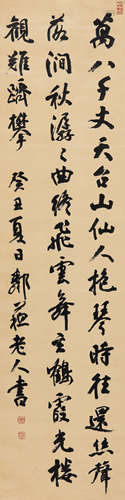 萬八千丈天台山仙人抱琴時往還絲聲
落澗秋潺潺曲終飛雲舞玄鶴霞光樓
觀難躋攀 癸丑夏日鄭蘇老人書